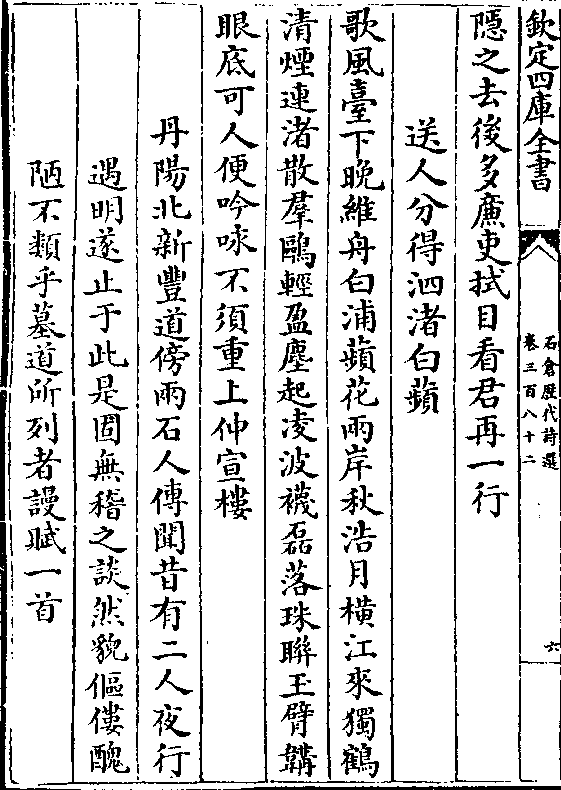 欽定四庫全書
石倉歴代詩選
卷三百八十二
六
隱之去後多廉吏拭目看君再一行
送人分得泗渚白蘋
歌風臺下晚維舟白浦蘋花兩岸秋浩月橫江來獨鶴
清煙連渚散羣鷗輕盈塵起凌波襪磊落珠聨玉臂韝
眼底可人便吟咏不須重上仲宣樓
丹陽北新豐道傍兩石人傳聞昔有二人夜行
遇明遂止于此是固無稽之談然貌傴僂醜
陋不類乎墓道所列者謾賦一首